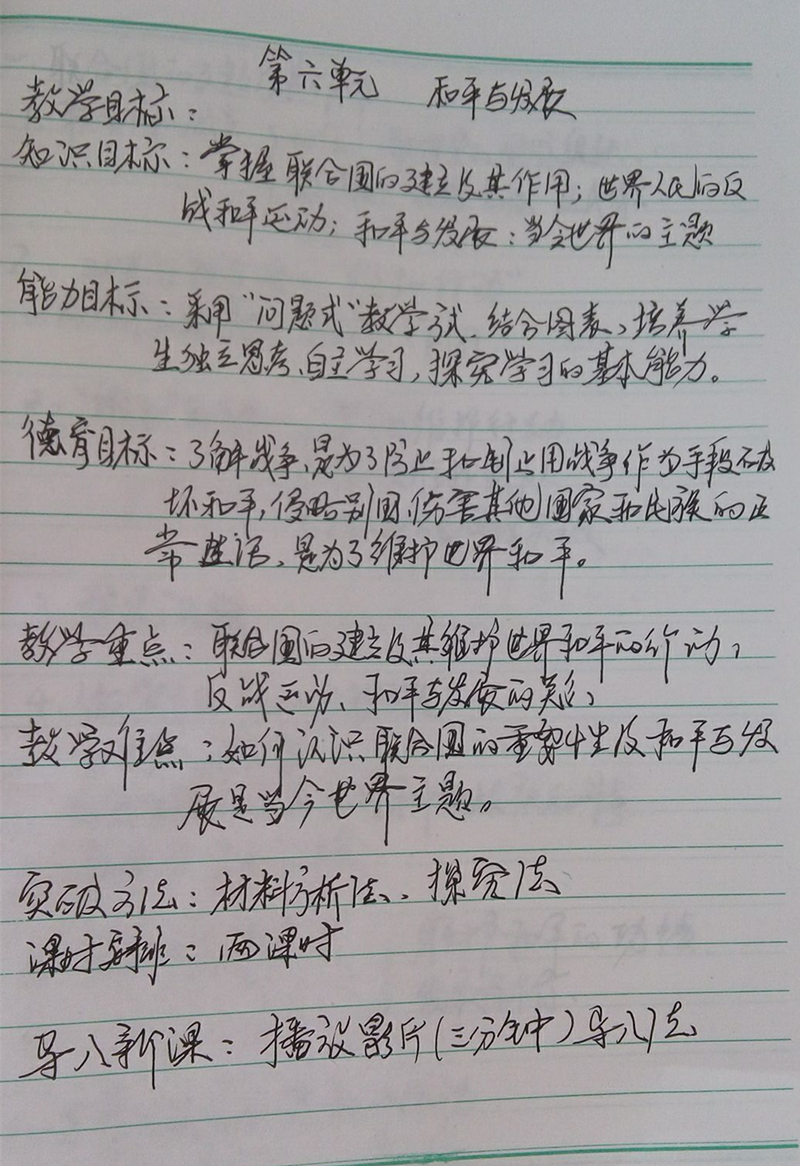 第六单元 和平与发展
教学目标：
知识目标：掌握联合国的建立及其作用；世界人民的反
战和平运动；和平与发展：当今世界的主题
能力目标：采用"问题式"教学试、结合图表、培养学
生独立思考、自主学习，探究学习的基本能力。
德育目标：了解战争，是为了防止和制止用战争作为手段破
坏和平，侵略别国，伤害其他国家和民族的正
常生活、是为了维护世界和平。
教学重点：联合国的建立及其维护世界和平的行动，
反战运动、和平与发展的关系；
教学难点：如何认识联合国的重要性及和平与发
展是当今世界主题。
突破方法：材料分析法、探究法
课时安排：两课时
导入新课：播放影片（三分钟）导入法